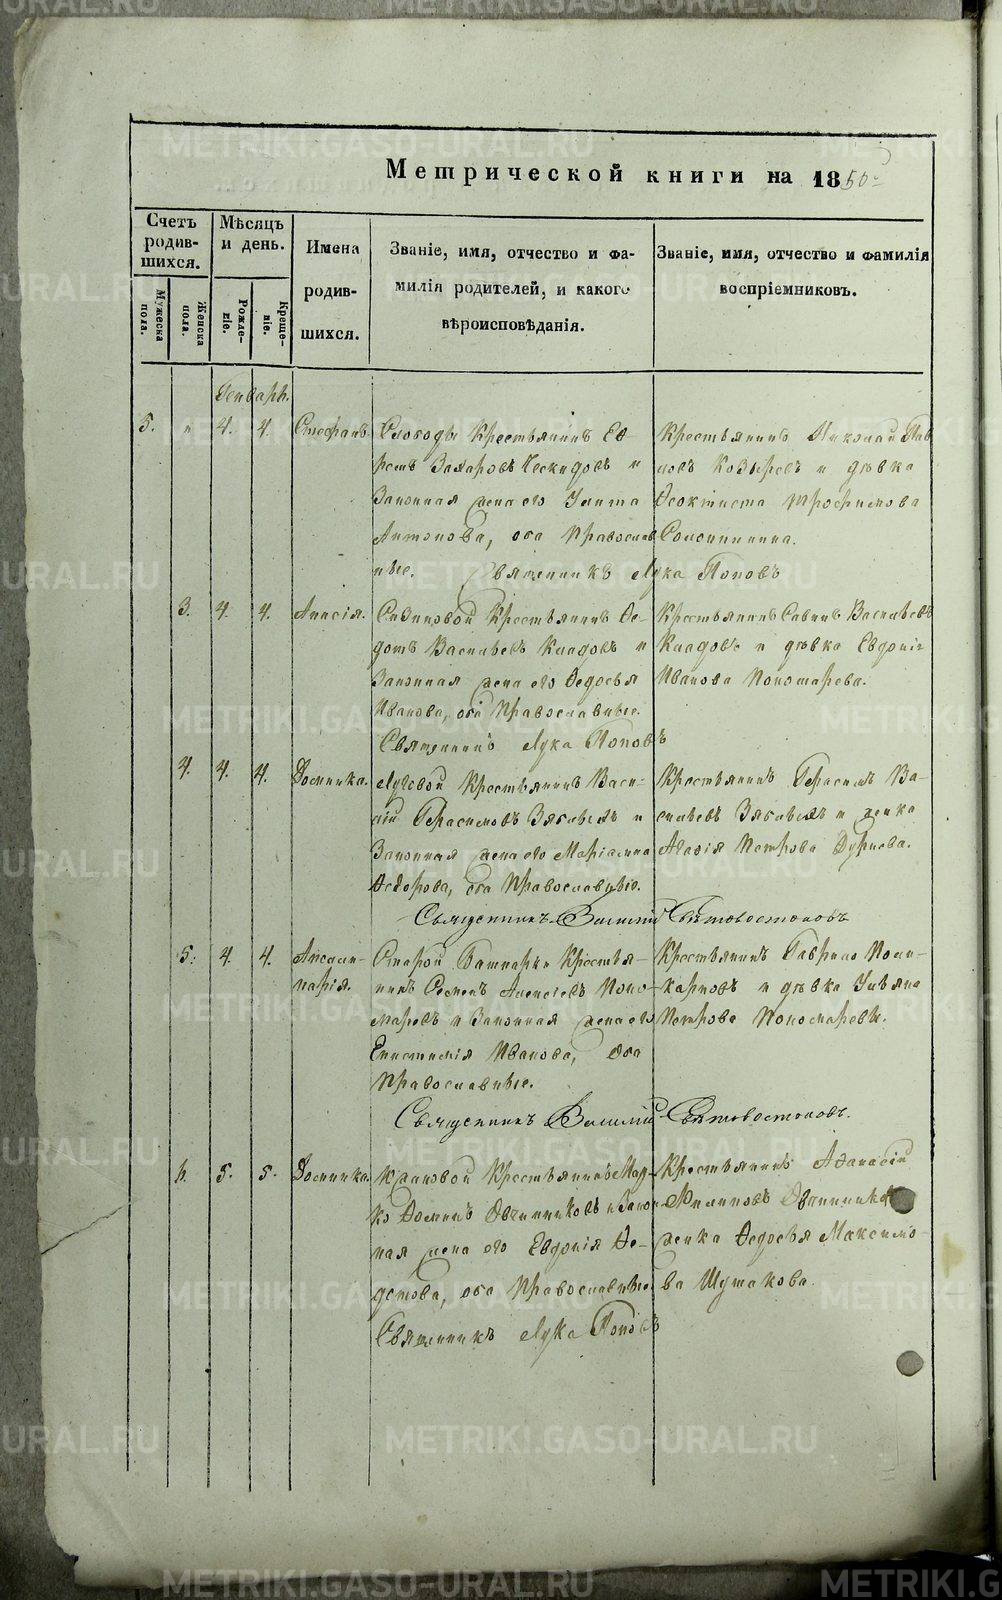 Метрической книги на 1850 г.
Счетъ родив-шихся.
Мужеска пола.
Женска пола.
Мѣсяцъ и день.
Рожде-ніе.
Креще-ніе.
Имена
родив-
шихся.
Званіе, имя, отчество и фа-
милія родителей, и какого
вѣроисповѣданія.
Званіе, имя, отчество и фамилія
воспріемниковъ.
Генварь.
5. " 4. 4. Стефанъ
Слободы Крестьянинъ Еф-
ремъ Захаровъ и
Законная жена его Улита
Антонова, оба Православ
ные. Священникъ Лука Поповъ
Крестьянинъ Николай Пав
ловъ Козыревъ и дѣвка
Феоктиста Трофимова
3. 4. 4. Анисія.
Крестьянинъ Фе-
дотъ Васильевъ Кладовъ и
Законная жена его Федосья
Иванова, оба Православные.
Священникъ Лука Поповъ
Крестьянинъ Савинъ Васильевъ
Кладовъ и дѣвка Евдокія
Иванова Пономарева.
4. 4. 4. Домника.
Луговой Крестьянинъ Васи-
лій Герасимовъ и
Законная жена его Маріамна
Федорова, оба Православные.
Священникъ Василій
Крестьянинъ Герасимъ Ва-
сильевъ и женка
Агафія Петрова Дурнева.
5. 4. 4. Аполли-
нарія.
Старой Крестья-
нинъ Семенъ Алексіевъ Поно-
маревъ и Законная жена его
Епистимія Иванова, Оба
Православные.
Священникъ Василій
Крестьянинъ Гаврило Поли-
карповъ и дѣвка Ульяна
Петрова Пономаревы.
6. 5. 5. Домника.
Крестьянинъ Мар-
ко Фоминъ Овчинниковъ и Закон-
ная жена его Евдокія Фе-
дотова, оба Православные
Священникъ Лука Поповъ
Крестьянинъ Афанасій
Филиповъ Овчинниковъ
женка Федосья Максимо-
ва Шутакова.
METRIKI.GASO-URAL.RU